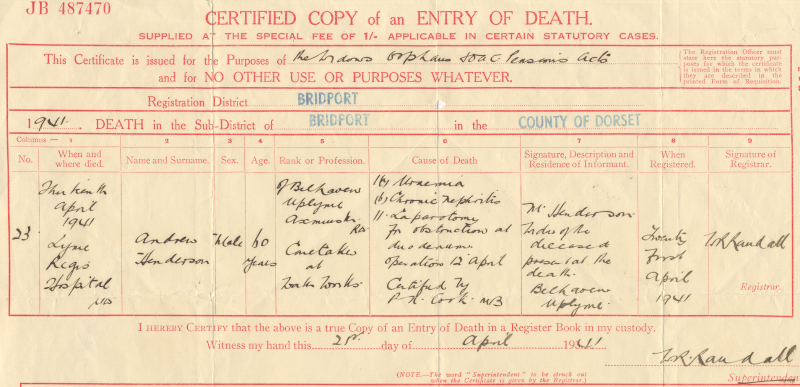 JB 487470
CERTIFIED COPY of an ENTRY OF DEATH.
SUPPLIED AT THE SPECIAL FEE OF 1/- APPLICABLE IN CERTAIN STATUTORY CASES.
This Certificate is issued for the Purposes of the Widows Orphans & OAC Pensions Acts
and for NO OTHER USE OR PURPOSES WHATEVER.
The Registration Officer must
state here the statutory pur-
poses for which the certificate
is issued in the terms in which
they are described in the
printed Form of Requisition.
Registration District BRIDPORT
1941. DEATH in the Sub-District of BRIDPORT in the COUNTY OF DORSET
Columns:— 1 2 3 4 5 6 7 8 9
No. When and where died. Name and Surname. Sex. Age. Rank or Profession. Cause of Death Signature, Description and Residence of Informant. When Registered. Signature of Registrar.
23
Thirteenth
April
1941
Lyme
Regis
Hospital
UD
Andrew
Henderson
Male
60
years
of Belhaven
Uplyme
Axminster
RD
Caretaker
at
Water Works
I(a) Uraemia
(b) Chronic nephritis
II. Laparotomy
for obstruction at
duodenum
operation 12 April
Certified by
P. N. Cook MB
M. Henderson
Widow of the
deceased
present at the
death.
Belhaven
Uplyme
Twenty
First
April
1941
W R Randall
Registrar.
I HEREBY CERTIFY that the above is a true Copy of an Entry of Death in a Register Book in my custody.
Witness my hand this 21st day of April 1941
W.R. Randall
(NOTE.—The word "Superintendent" to be struck out
when the Certificate is given by the Registrar.)
Superintenden